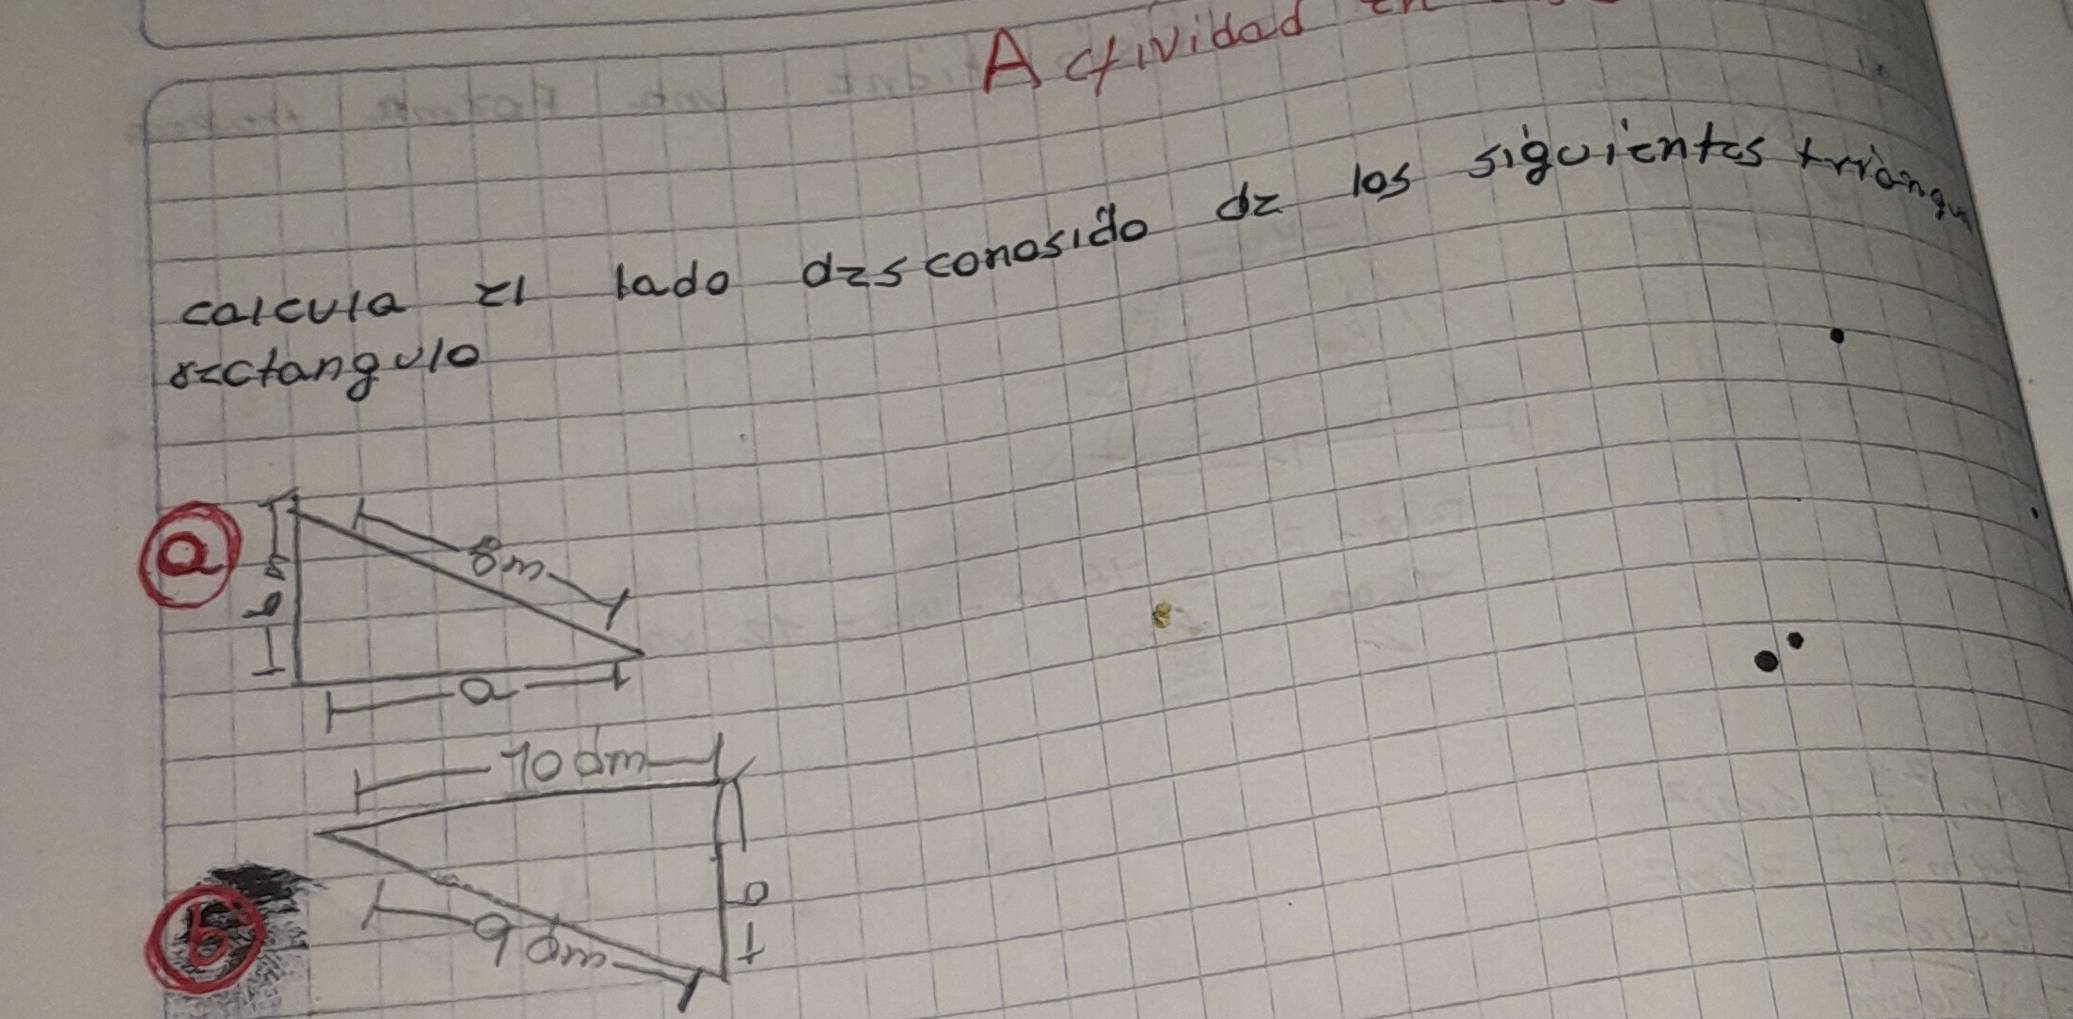 Actividad en
calcula el lado desconosido de los siguientes triangu
rectangulo
a
8m
a
10 dm
b
9 dm
a